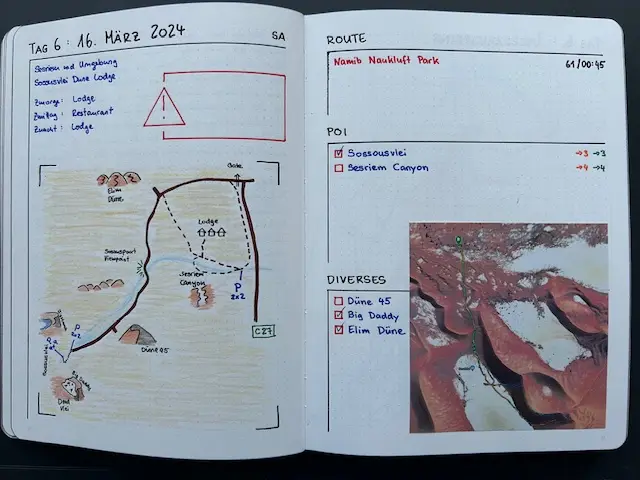 TAG 6: 16. MÄRZ 2024 SA
Sesriem und Umgebung
Sossusvlei Dune Lodge
Zmorge: Lodge
Zmittag: Restaurant
Znacht: Lodge
!
Gate
Elim
Düne
Lodge
Sesriem
Canyon
P
2x2
C27
P
2x2
Düne 45
Sossusvlei
Big Daddy
Dead
Vlei
ROUTE
Namib Naukluft Park 61/00:45
POI
Sossousvlei →3 →3
Sesriem Canyon →4 →4
DIVERSES
Düne 45
Big Daddy
Elim Düne